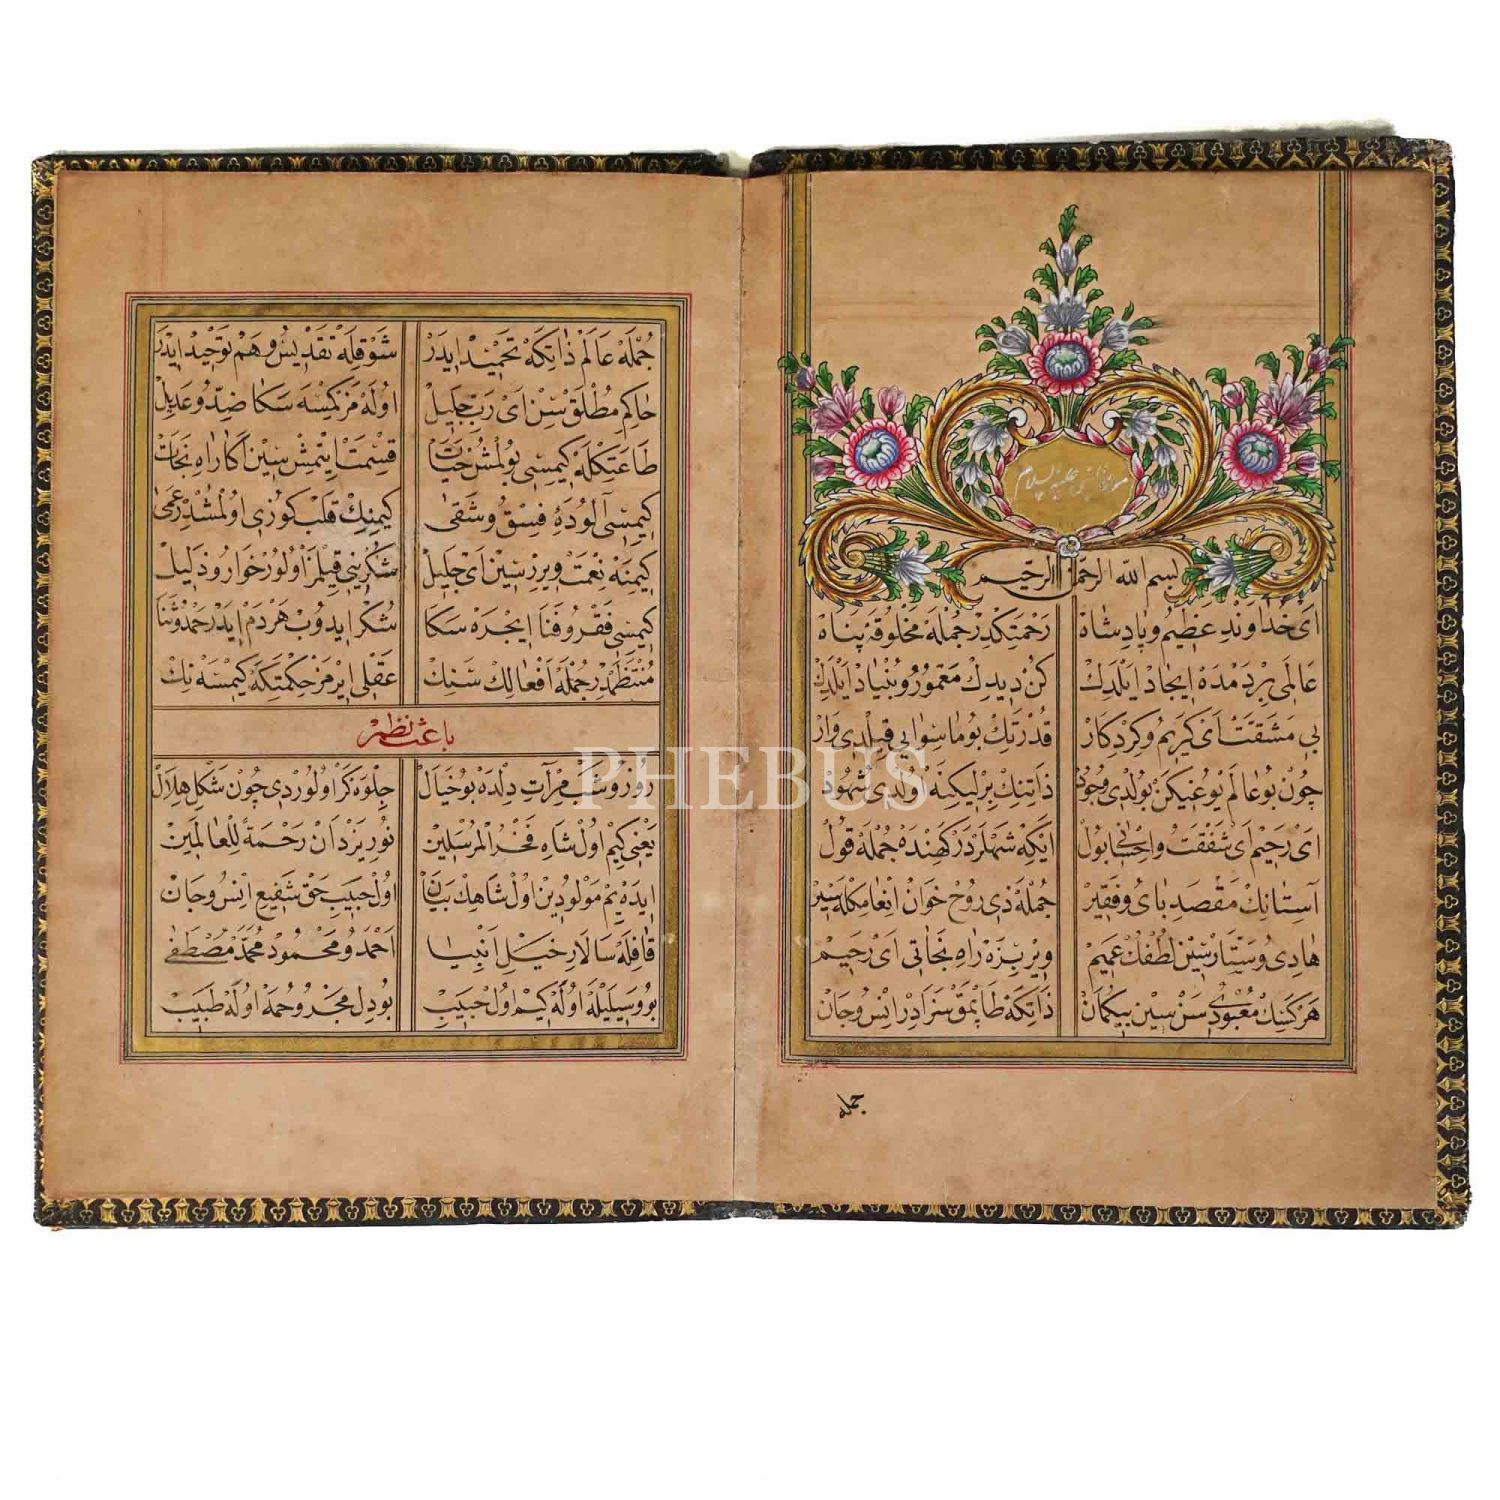 مولد النبي عليه السلام
بسم الله الرحمن الرحيم
اى خداوند عظيم و پادشاه رحمتكدر جمله مخلوقه پناه
عالمى بردمده ايجاد ايلدك كن ديدك معمور و بنياد ايلدك
بى مشقت اى كريم و كردكار قدرتك بو ماسوايى قيلدى وار
چون بو عالم بوغيكن بولدى وجود ذاتنك برليكينه اولدى شهود
اى رحيم اى شفقت و احسانى بول ايكه شهلر دركهنده جمله قول
آستانك مقصد باى و فقير جمله ذى روح خوان انعامكله سير
هادى و ستارسين لطفك عميم وير بزه راه نجاتى اى رحيم
هر كسك معبودى سن سين بيكمان ذاتكه طاپمق سزادر انس و جان
جمله
جمله عالم ذاتكه تحميد ايدر شوقله تقديس و هم توحيد ايدر
حاكم مطلق سين اى رب جليل اوله مز كيمسه سكا ضد و عديل
طاعتكله كيمسى بولمش حيات قسمت ايتمش سين اكا راه نجات
كيمسى آلوده فسق و شقى كيمنك قلب كوزى اولمشدر عمى
كيمنه نعمت ويررسين اى جليل شكرينى قيلمز اولور خوار و ذليل
كيمسى فقر و فنا ايچره سكا شكر ايدوب هردم ايدر حمد و ثنا
منتظمدر جمله افعالك سنك عقلى ايرمز حكمتكه كيمسه نك
باعث نظم
روز و شب مرآت دلده بو خيال جلوه كر اولوردى چون شكل هلال
يعنى كيم اول شاه فخر المرسلين نور يزدان رحمة للعالمين
ايده يم مولودين اول شاهك بيان اول حبيب حق شفيع انس و جان
قافله سالار خيل انبيا احمد و محمود محمد مصطفى
بو وسيليله اوله كيم اول حبيب بو دل مجروحمه اوله طبيب
PHEBUS